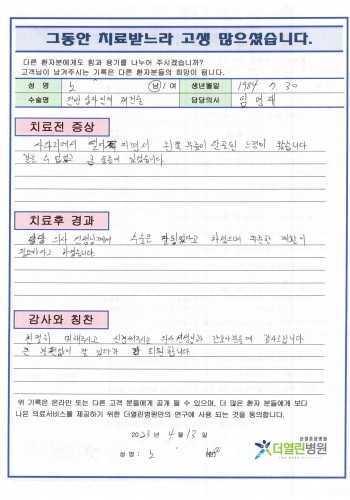 그동안 치료받느라 고생 많으셨습니다.
다른 환자분에게도 힘과 용기를 나누어 주시겠습니까?
고객님이 남겨주시는 기록은 다른 환자분들의 희망이 됩니다.
성 명 노 남 / 여 생년월일 1984 7. 30
수술명 전방 십자인대 재건술 담당의사
치료전 증상
사다리에서 떨어지면서 뒤쪽
걸을 수 없었고 큰 있었습니다
치료후 경과
담당 의사 선생님께서 수술은 잘 되었다고 하셨으며 꾸준한 재활이
필요하다고 하셨습니다.
감사와 칭찬
친절히 대해주시고 신경써주시는 의사선생님과 간호사분들께 감사드립니다
큰 불편없이 잘 있다가 퇴원합니다
위 기록은 온라인 또는 다른 고객 분들에게 공개 될 수 있으며, 더 많은 환자 분들에게 보다
나은 의료서비스를 제공하기 위한 더열린병원만의 연구에 사용 되는 것을 동의합니다.
2023 년 4 월 13 일
성 명 : 노
더열린병원